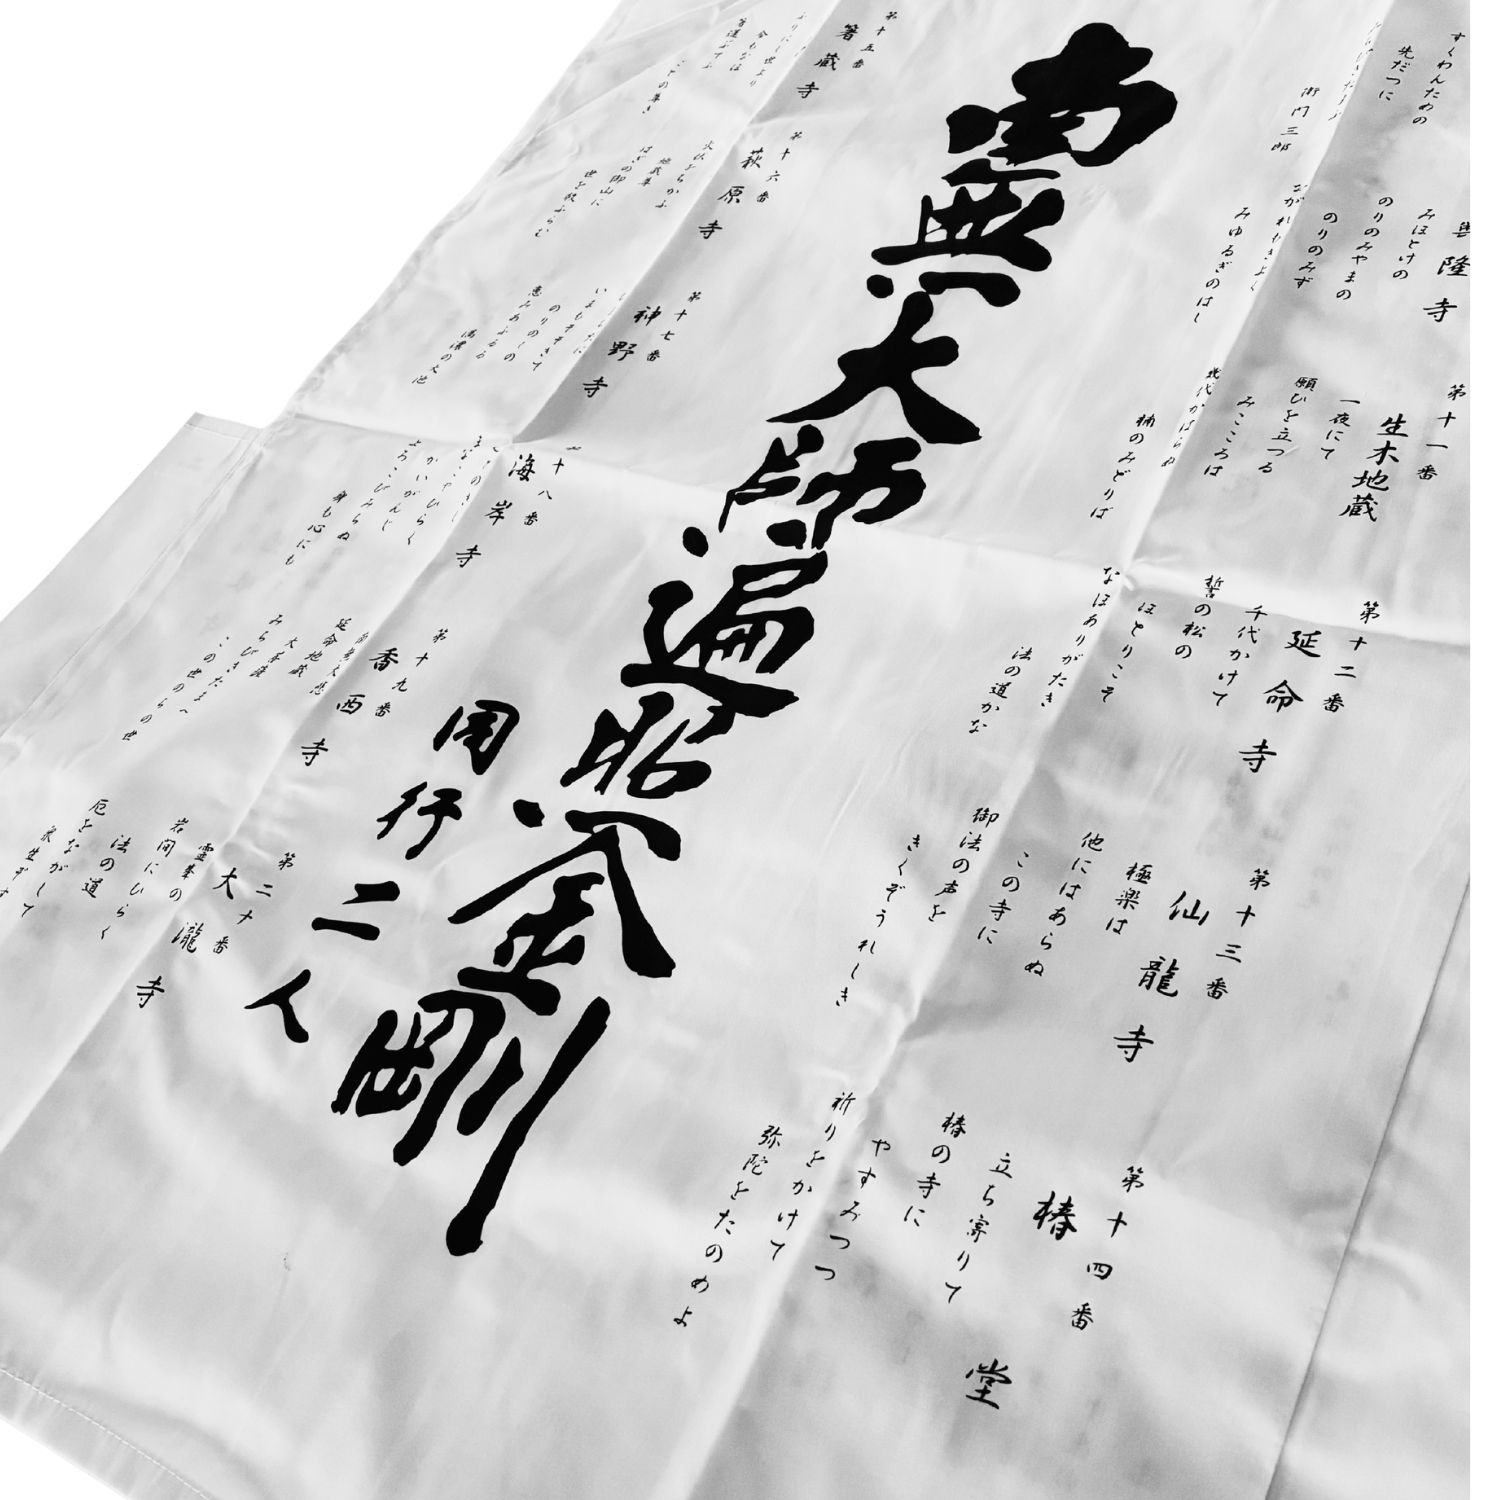 すくわんための
先だつに
衛門三郎
隆寺
みほとけの
のりのみやまの
のりのみず
ながれもきよく
みゆるぎのはし
第十一番
生木地蔵
一夜にて
願ひを立つる
みこころは
幾代かはらぬ
楠のみどりば
第十二番
延命寺
千代かけて
誓の松の
ほとりこそ
なほありがたき
法の道かな
第十三番
仙龍寺
極楽は
他にはあらぬ
この寺に
御法の声を
きくぞうれしき
第十四番
椿堂
立ち寄りて
椿の寺に
やすみつつ
祈りをかけて
弥陀をたのめよ
南無大師遍照金剛
同行二人
第十五番
箸蔵寺
第十六番
萩原寺
地蔵尊
はぎの御山に
世を救ふらむ
第十七番
神野寺
いまもます
のりのしの
恵みあふるる
満濃の大池
十八番
海岸寺
かいがんじ
よろこびみちぬ
身も心にも
第十九番
香西寺
延命地蔵
大菩薩
みちびきたまへ
この世のちの世
第二十番
大瀧寺
霊峯の
岩間にひらく
法の道
厄をながして
衆生